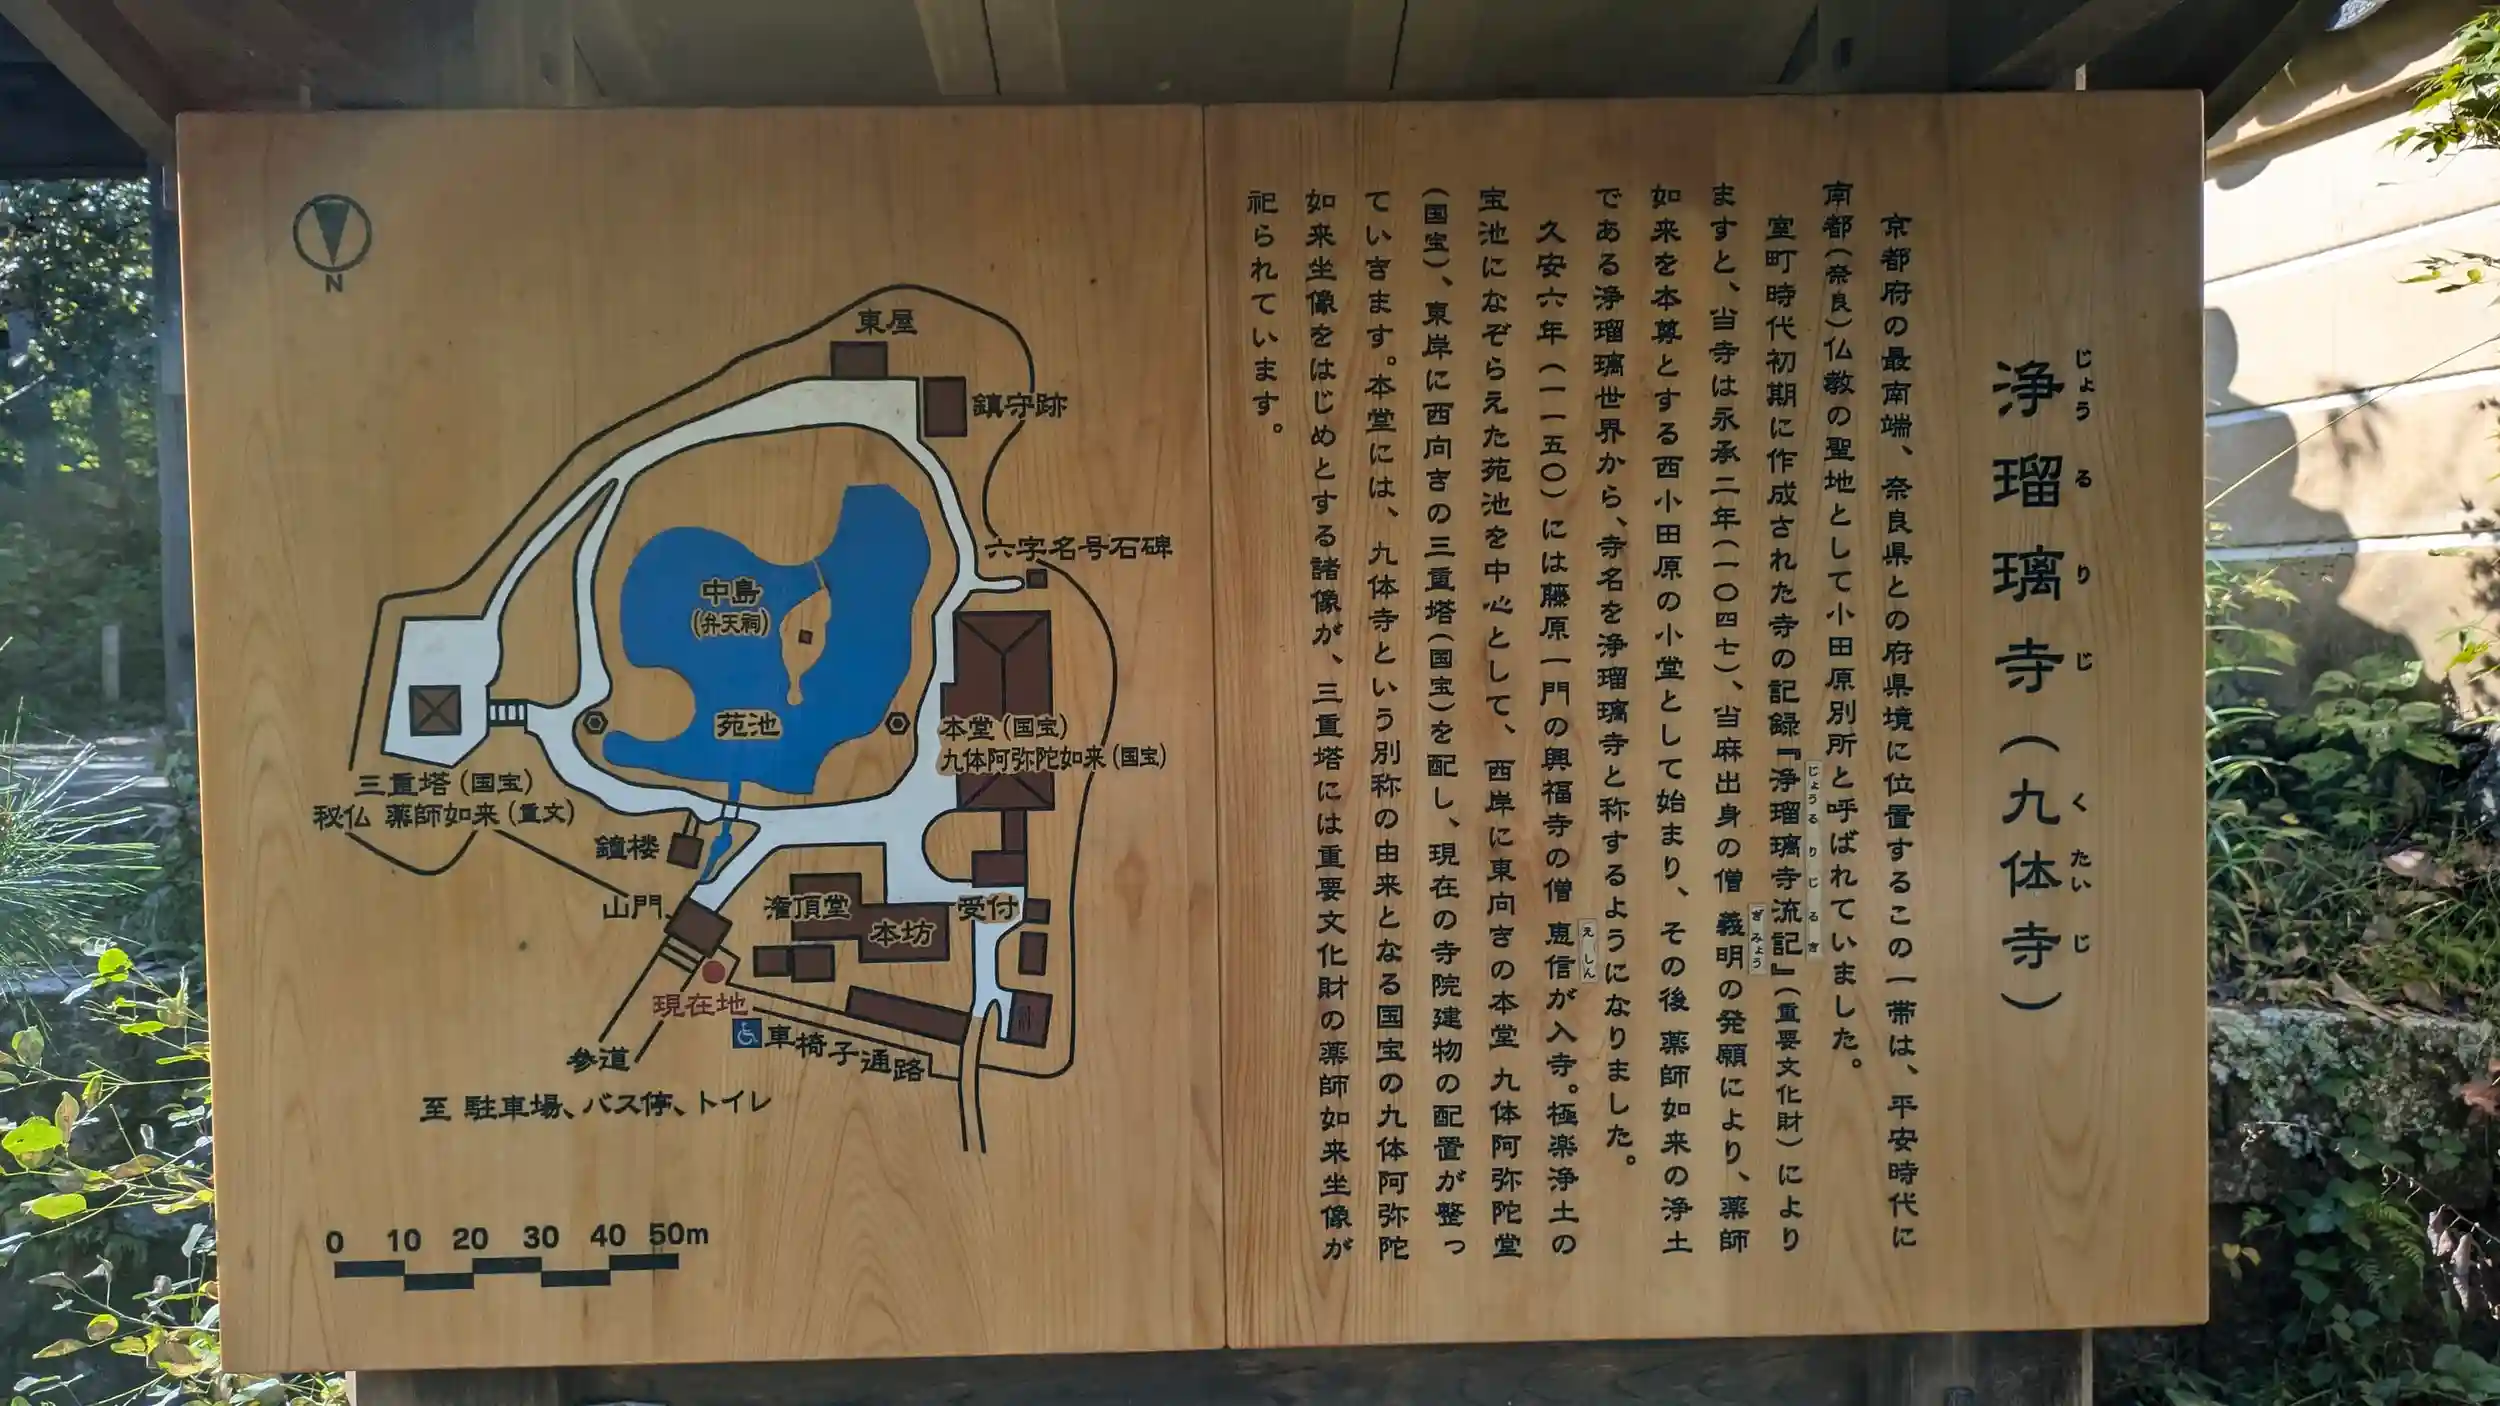 浄瑠璃寺（九体寺）
じょうるりじ くたいじ
京都府の最南端、奈良県との府県境に位置するこの一帯は、平安時代に
南都（奈良）仏教の聖地として小田原別所と呼ばれていました。
室町時代初期に作成された寺の記録『浄瑠璃寺流記』（重要文化財）により
じょうるりじるき
ますと、当寺は永承二年（一〇四七）、当麻出身の僧 義明の発願により、薬師
ぎみょう
如来を本尊とする西小田原の小堂として始まり、その後 薬師如来の浄土
である浄瑠璃世界から、寺名を浄瑠璃寺と称するようになりました。
久安六年（一一五〇）には藤原一門の興福寺の僧 恵信が入寺。極楽浄土の
えしん
宝池になぞらえた苑池を中心として、西岸に東向きの本堂 九体阿弥陀堂
（国宝）、東岸に西向きの三重塔（国宝）を配し、現在の寺院建物の配置が整っ
ていきます。本堂には、九体寺という別称の由来となる国宝の九体阿弥陀
如来坐像をはじめとする諸像が、三重塔には重要文化財の薬師如来坐像が
祀られています。
N
東屋
鎮守跡
六字名号石碑
中島
（弁天祠）
苑池
本堂（国宝）
九体阿弥陀如来（国宝）
三重塔（国宝）
秘仏 薬師如来（重文）
鐘楼
山門
潅頂堂
本坊
受付
現在地
車椅子通路
参道
至 駐車場、バス停、トイレ
0 10 20 30 40 50m